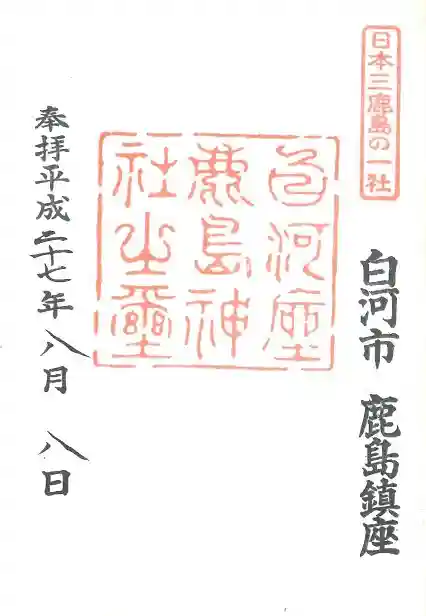 日本三鹿島の一社
白河市 鹿島鎮座
白河座
鹿島神
社之璽
奉拝平成二十七年八月八日